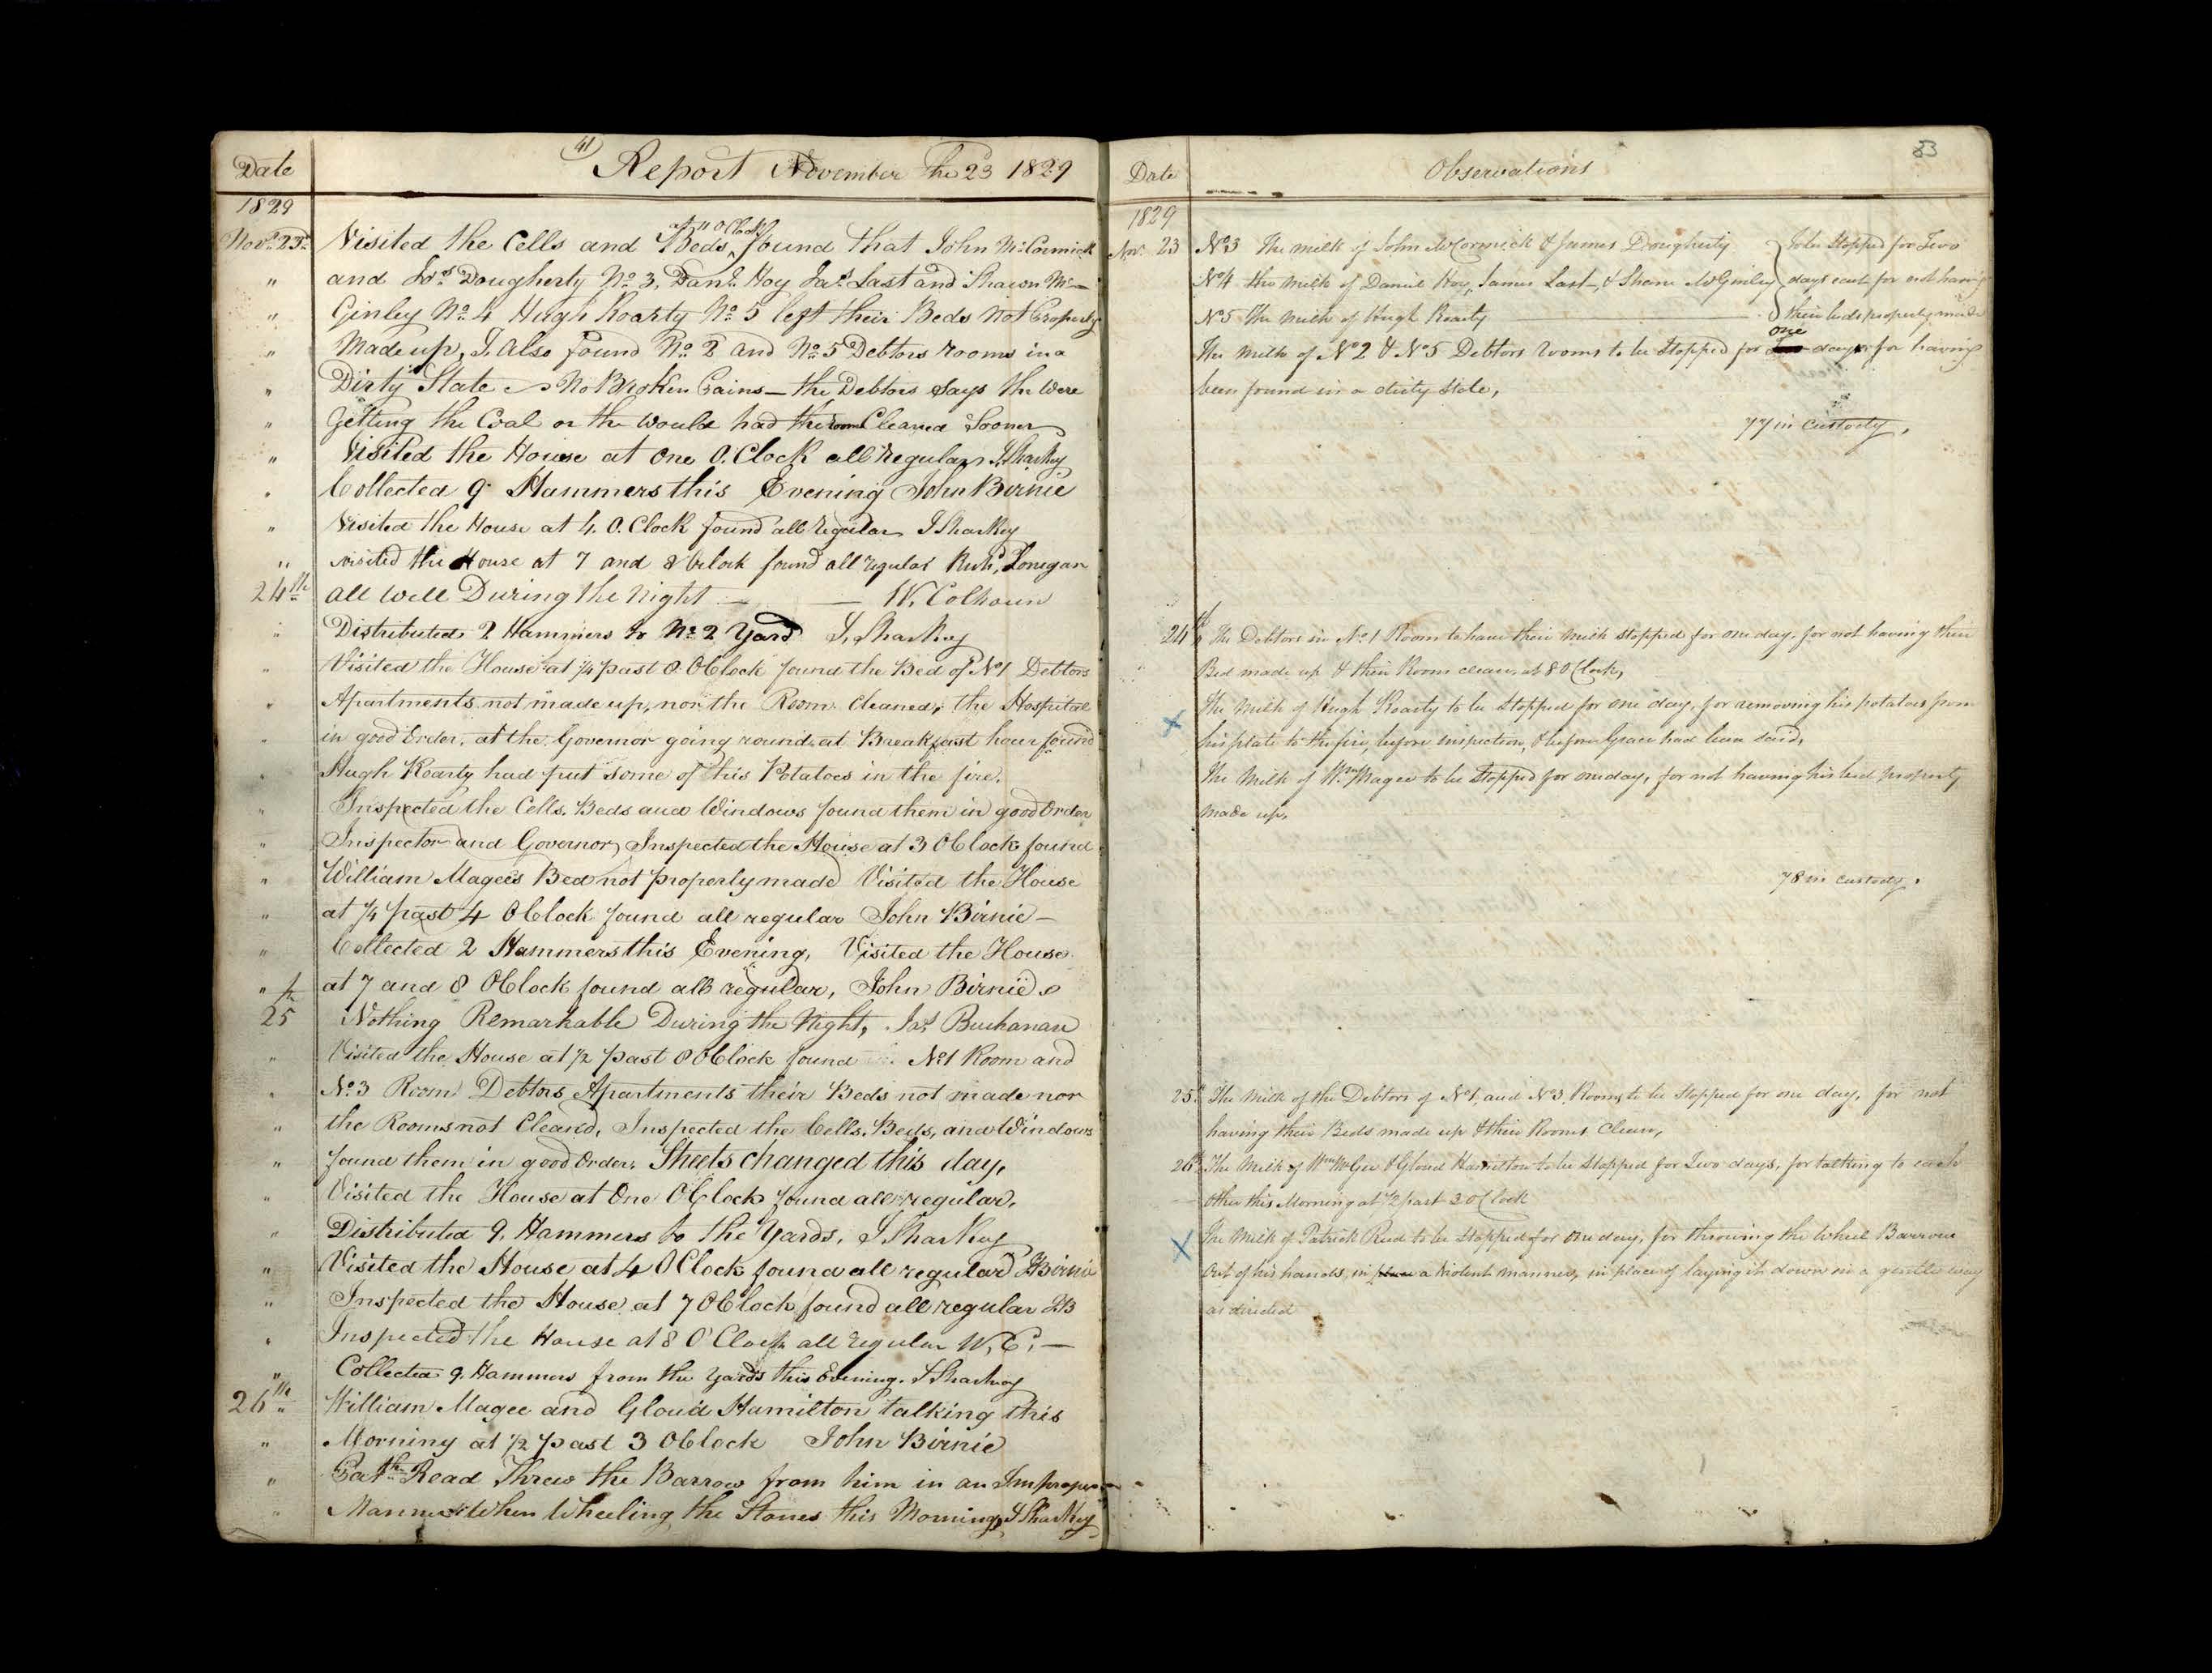 41
Date Report November the 23 1829
1829
Novr. 23d. Visited the Cells and Beds at 11 O Clock found that John McCormick
" and Jas. Dougherty No. 3, Danl. Hoy Jas. Last and Sharon Mc-
" Ginley No. 4 Hugh Roarty No. 5 left their Beds Not Properly
" Made up, I Also found No. 2 and No. 5 Debtors rooms in a
" Dirty State No Broken Pains — the Debtors Says the Were
" Getting the Coal or the would had the room Cleaned Sooner
" Visited the House at One O. Clock all regular J. Sharkey
" Collected 9 Hammers this Evening John Birnie
" Visited the House at 4. O. Clock found all regular J Sharkey
" visited the House at 7 and 8 Oclock found all regular Richd. Lonegan
24th all Well During the Night — — W. Colhoun
" Distributed 2 Hammers to No. 2 Yard J. Sharkey
" Visited the House at 1/4 past 8 OClock found the Bed of No 1 Debtors
" Apartments not made up, nor the Room Cleaned, the Hospital
" in good Order. at the Governor going round at Breakfast hour found
" Hugh Roarty had put some of his Potatoes in the fire.
" Inspected the Cells. Beds and Windows found them in good Order
" Inspector and Governor, Inspected the House at 3 OClock found
" William Magees Bed not properly made Visited the House
" at 1/4 past 4 OClock found all regular John Birnie —
" Collected 2 Hammers this Evening, Visited the House
" at 7 and 8 OClock found all regular, John Birnie
25th Nothing Remarkable During the Night, Jas. Buchanan
" Visited the House at 1/2 past 8 OClock found No 1 Room and
" No. 3 Room Debtors Apartments their Beds not made nor
" the Rooms not Cleand, Inspected the Cells. Beds, and Windows
" found them in good Order. Sheets changed this day,
" Visited the House at One OClock found all regular.
" Distributed 9, Hammers to the Yards, J Sharkey
" Visited the House at 4 OClock found all regular J Birnie
" Inspected the House at 7 OClock found all regular JB
" Inspected the House at 8 O'Clock all regular W. C. —
" Collected 9, Hammers from the yards this Evening. J Sharkey
26th William Magee and Gloud Hamilton talking this
" Morning at 1/2 past 3 OClock John Birnie
" Patk. Read Threw the Barrow from him in an Improper
" Manner When Wheeling the Stones this Morning, J Sharkey
83
Date Observations
1829
Nov. 23 No 3 The milk of John McCormick & James Dougherty
No 4 the milk of Daniel Hoy, James Last, & Shane McGinley
No 5 The milk of Hugh Roarty
to be Stopped for Two
days each for not having
their beds properly made
The milk of No 2 & No 5 Debtors Rooms to be Stopped for one day for having
been found in a dirty state,
77 in Custody.
24th The Debtors in No. 1 Room to have their milk stopped for one day, for not having their
Bed made up & their Room clean, at 8 OClock,
The Milk of Hugh Roarty to be Stopped for one day, for removing his potatoes from
his plate to the fire, before inspection, & before Grace had been said,
The Milk of Wm. Magee to be Stopped for one day, for not having his bed properly
made up,
78 in custody.
25th The Milk of the Debtors of No 1, and No 3, Rooms to be Stopped for one day, for not
having their Beds made up & their Rooms Clean,
26th The Milk of Wm McGee & Gloud Hamilton to be Stopped for Two days, for talking to each
other this Morning at 1/2 past 3 OClock
The Milk of Patrick Reid to be Stopped for One day, for throwing the Wheel Barrow
out of his hands, in place a Violent manner, in place of laying it down in a gentle way
as directed